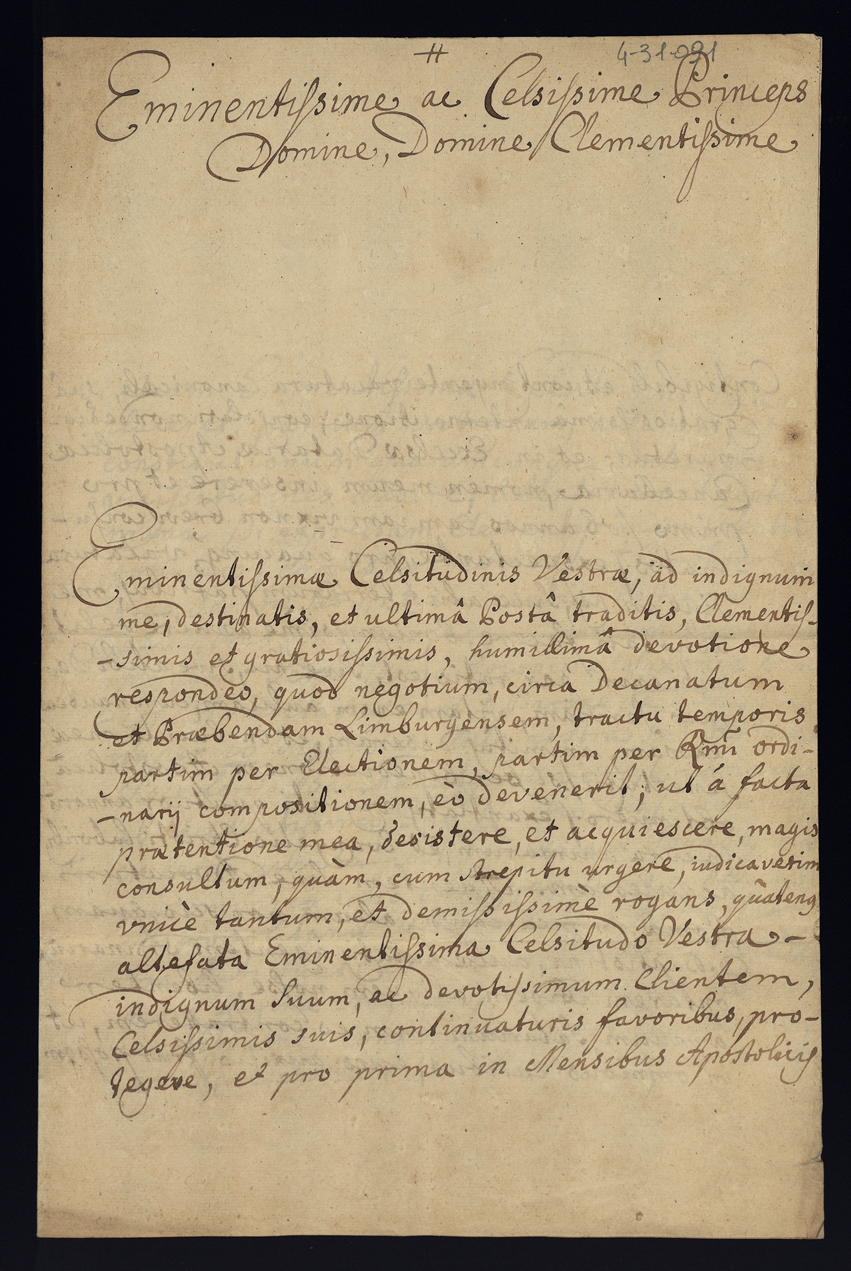 #
4-31-091
Eminentissime ac Celsissime Princeps
Domine, Domine Clementissime
Eminentissimæ Celsitudinis Vestræ, ad indignum
me, destinatis, et ultimâ Postâ traditis, Clementis-
-simis et gratiosissimis, humillimâ devotione
respondeo, quod negotium, circa Decanatum
et Præbendam Limburgensem, tractu temporis
partim per Electionem, partim per Rmi ordi-
-narij compositionem, eò devenerit; ut á facta
prætentione mea, desistere, et acquiescere, magis
consultum, quàm, cum strepitu urgere, iudicaverim
vnicè tantum, et demississimè rogans, quatenq
altefata Eminentissima Celsitudo Vestra -
indignum Suum, ac devotissimum Clientem,
Celsissimis suis, continuaturis favoribus, pro-
tegere, et pro prima in Mensibus Apostolicis